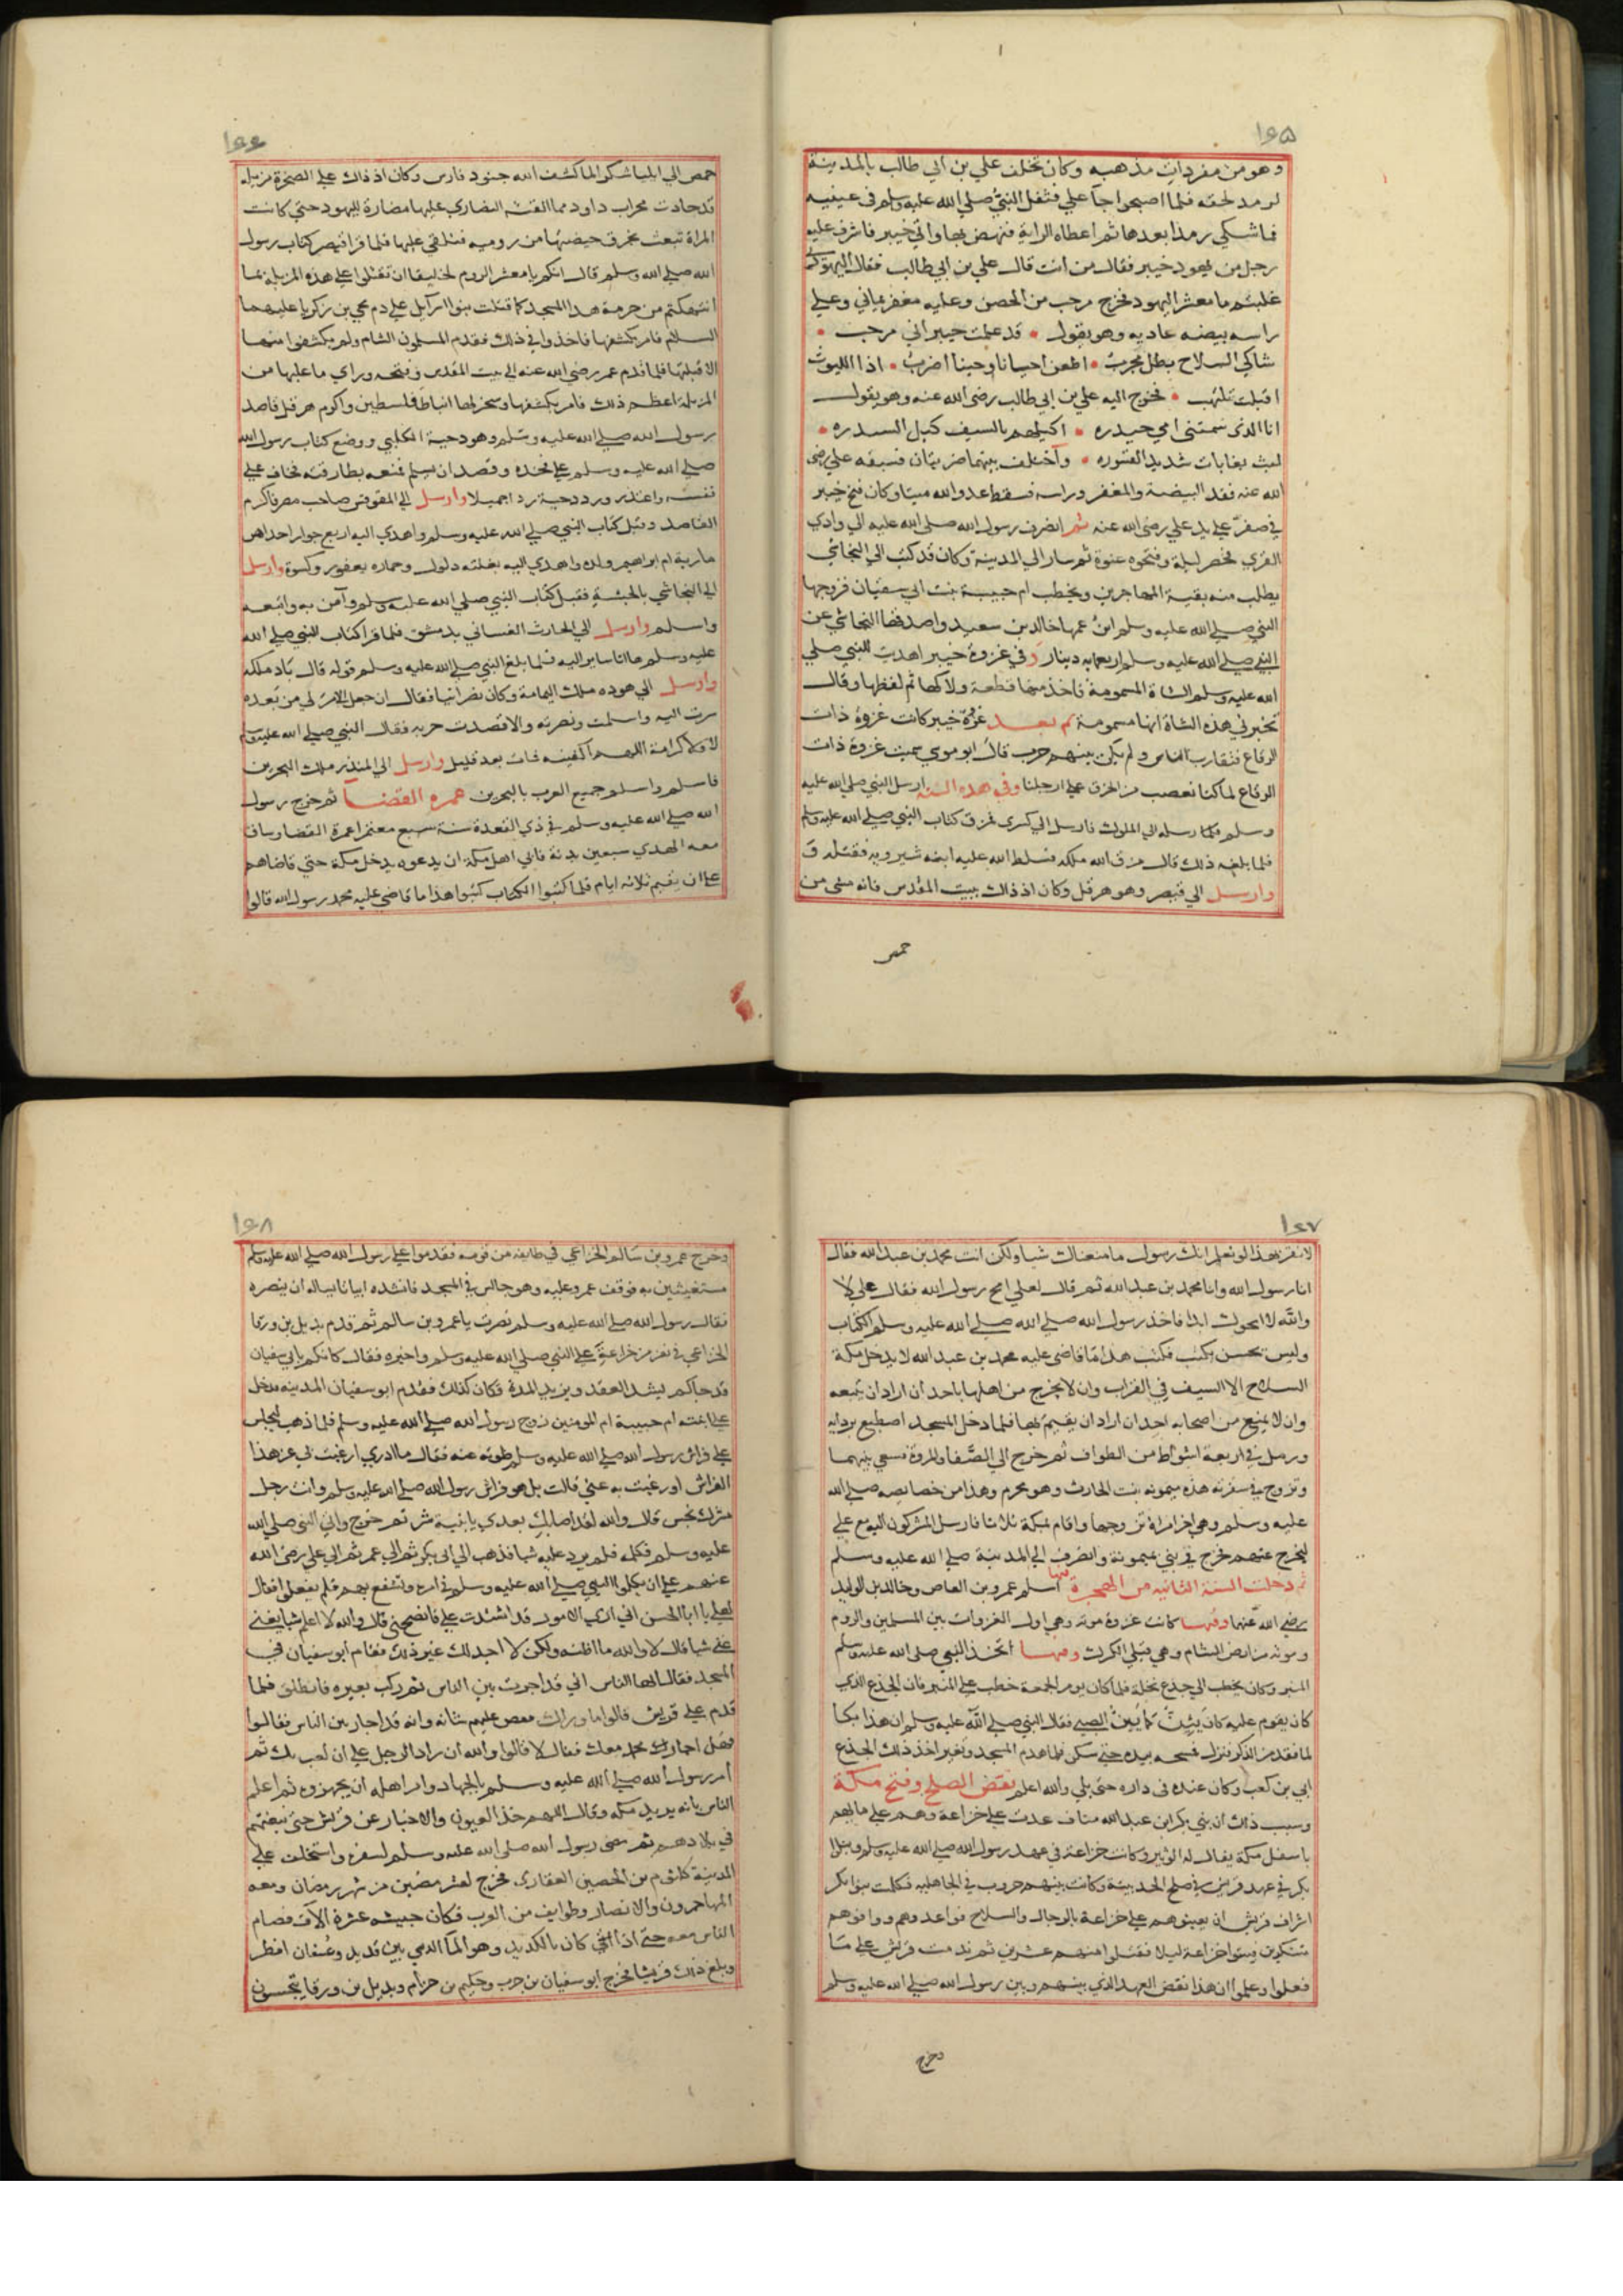 ١٤٥
وهو من مفردات مذهبه وكان تخلف علي بن ابي طالب بالمدينة
لرمد لحقه فلما اصبحوا جآ علي فتفل النبي صلي الله عليه وسلم في عينيه
فما شكي رمدا بعدها ثم اعطاه الراية فنهض بها واتي خيبر فاشرف عليه
رجل من يهود خيبر فقال من انت قال علي بن ابي طالب فقال اليهودي
غلبتم يا معشر اليهود فخرج مرحب من الحصن وعليه مغفر يماني وعلي
راسه بيضه عاديه وهو يقول • قد علمت خيبر اني مرحب •
شاكي السلاح بطل مجرب • اطعن احيانا وحينا اضرب • اذا الليوث
اقبلت تلهب • فخرج اليه علي بن ابي طالب رضي الله عنه وهو يقول
انا الذي سمتني امي حيدره • اكيلهم بالسيف كيل السندره •
ليث بغابات شديد القسوره • واختلف بينهما ضربتان فسبقه علي رضي
الله عنه فقد البيضة والمغفر وراسه فسقط عدو الله ميتا وكان فتح خيبر
في صفر علي يد علي رضي الله عنه ثم انصرف رسول الله صلي الله عليه الي وادي
القري فحصر ليلة وفتحوه عنوة ثم سار الي المدينة وكان قد كتب الي النجاشي
يطلب منه بقية المهاجرين ويخطب ام حبيبة بنت ابي سفيان فزوجها
النبي صلي الله عليه وسلم ابن عمها خالد بن سعيد واصدقها النجاشي عن
النبي صلي الله عليه وسلم اربعمايه دينار وفي غزوة خيبر اهدت للنبي صلي
الله عليه وسلم الشاة المسمومة فاخذ منها قطعة ولاكها ثم لفظها وقال
تخبرني هذه الشاة انها مسمومة ثم بعد غزوة خيبر كانت غزوة ذات
الرقاع فتقارب الناس ولم يكن بينهم حرب قال ابو موسي سميت غزوة ذات
الرقاع لما كنا نعصب من الخرق علي ارجلنا وفي هذه السنة ارسل النبي صلي الله عليه
وسلم رسله الي الملوك فارسل الي كسري فمزق كتاب النبي صلي الله عليه وسلم
فلما بلغه ذلك قال مزق الله ملكه فسلط الله عليه ابنه شيرويه فقتله
وارسل الي قيصر وهو هرقل وكان اذ ذاك ببيت المقدس فانه مشي من
حمص
١٤٦
حمص الي ايليا شكرا لما كشف الله جنود فارس وكان اذ ذاك علي الصخرة مزبله
قد حاذت محراب داود مما القته النصاري عليها مضارة لليهود حتي كانت
المراة تبعث بخرق حيضتها من روميه فتلقي عليها فلما قرا قيصر كتاب رسول
الله صلي الله وسلم قال انكم يا معشر الروم لخليقا ان تقتلوا علي هذه المزبلة بما
انتهكتم من حرمة هذا المسجد كما قتلت بنوا اسرآيل علي دم يحيي بن زكريا عليهما
السلام فامر بكشفها فاخذوا في ذلك فقدم المسلمون الشام ولم يكشفوا منها
الا ثلثها فلما قدم عمر رضي الله عنه الي بيت المقدس وفتحه وراي ما عليها من
المزبلة اعظم ذلك فامر بكشفها وسخر لها انباط فلسطين واكرم هرقل قاصد
رسول الله صلي الله عليه وسلم وهو دحية الكلبي ووضع كتاب رسول الله
صلي الله عليه وسلم علي فخذه وقصد ان يسلم فمنعه بطارقته فخاف علي
نفسه واعتذر ورد دحية ردا جميلا وارسل الي المقوقس صاحب مصر فاكرم
القاصد وقبل كتاب النبي صلي الله عليه وسلم واهدي اليه اربع جوار احداهن
مارية ام ابراهيم ولده واهدي اليه بغلته دلول وحماره يعفور وكسوة وارسل
الي النجاشي بالحبشة فقبل كتاب النبي صلي الله عليه وسلم وآمن به واتبعه
واسلم وارسل الي الحارث الغساني بدمشق فلما قرا كتاب النبي صلي الله
عليه وسلم ها انا ساير اليه فلما بلغ النبي صلي الله عليه وسلم قوله قال باد ملكه
وارسل الي هوده ملك اليمامة وكان نصرانيا فقال ان جعل الامر لي من بعده
سرت اليه واسلمت ونصرته والا قصدت حربه فقال النبي صلي الله عليه وسلم
لا ولا كرامة اللهم اكفينه فمات بعد قليل وارسل الي المنذر ملك البحرين
فاسلم واسلم جميع العرب بالبحرين عمره القضا ثم خرج رسول
الله صلي الله عليه وسلم في ذي القعدة سنة سبع معتمرا عمرة القضا وساق
معه الهدي سبعين بدنة فابي اهل مكة ان يدعوه يدخل مكة حتي قاضاهم
علي ان يقيم ثلاثه ايام فلما كتبوا الكتاب كتبوا هذا ما قاضي عليه محمد رسول الله قالوا
١٤٧
لا نقر بهذا لو نعلم انك رسول ما منعناك شيا ولكن انت محمد بن عبد الله فقال
انا رسول الله وانا محمد بن عبد الله ثم قال لعلي امح رسول الله فقال علي لا
والله لا امحوك ابدا فاخذ رسول الله صلي الله صلي الله عليه وسلم الكتاب
وليس يحسن يكتب فكتب هذا ما قاضي عليه محمد بن عبد الله لا يدخل مكة
السلاح الا السيف في القراب وان لا يخرج من اهلها باحد ان اراد ان يتبعه
وان لا يمنع من اصحابه احد ان اراد ان يقيم بها فلما دخل المسجد اصطبع بردايه
ورمل في اربعة اشواط من الطواف ثم خرج الي الصفا والمروة فسعي بينهما
وتزوج في سفرته هذه ميمونه بنت الحارث وهو محرم وهذا من خصايصه صلي الله
عليه وسلم وهي اخر امراة تزوجها واقام بمكة ثلاثا فارسل المشركون اليه مع علي
ليخرج عنهم فخرج في بني بميمونة وانصرف الي المدينة صلي الله عليه وسلم
ثم دخلت السنة الثانيه من الهجرة فيها اسلم عمرو بن العاص وخالد بن الوليد
رضي الله عنهما وفيها كانت غزوة موته وهي اول الغزوات بين المسلمين والروم
وموته من ارض الشام وهي قبلي الكرك وفيها اتخذ النبي صلي الله عليه وسلم
المنبر وكان يخطب الي جذع نخلة فلما كان يوم الجمعة خطب علي المنبر فان الجذع الذي
كان يقوم عليه كان يئن كما يئن الصبي فقال النبي صلي الله عليه وسلم ان هذا بكا
لما فقد من الذكر فنزل فمسحه بيده حتي سكن فلما هدم المسجد وتغير اخذ ذلك الجذع
ابي بن كعب وكان عنده في داره حتي بلي والله اعلم نقض الصلح وفتح مكة
وسبب ذلك ان بني بكر ابن عبد الله مناف عدت علي خزاعة وهم علي ما لهم
باسفل مكة يقال له الوتير وكانت خزاعة في عهد رسول الله صلي الله عليه وسلم وبنوا
بكر في عهد قريش في صلح الحديبية وكانت بينهم حروب في الجاهليه فكلمت بنوا بكر
اشراف قريش ان يعينوهم علي خزاعة بالرجال والسلاح فواعدوهم ووافوهم
متنكرين فبيتوا خزاعة ليلا فقتلوا منهم عشرين ثم ندمت قريش علي ما
فعلوا وعلموا ان هذا نقض العهد الذي بينهم وبين رسول الله صلي الله عليه وسلم
وخرج
١٤٨
وخرج عمرو بن سالم الخزاعي في طايفه من قومه فقدموا علي رسول الله صلي الله عليه وسلم
مستغيثين به فوقف عمرو عليه وهو جالس في المسجد فانشده ابياتا يساله ان ينصره
فقال رسول الله صلي الله عليه وسلم نصرت يا عمرو بن سالم ثم قدم بديل بن ورقا
الخزاعي في نفر من خزاعة علي النبي صلي الله عليه وسلم واخبره فقال كانكم بابي سفيان
قد جآكم ليشد العقد ويزيد المدة فكان كذلك فقدم ابو سفيان المدينه فدخل
علي ابنته ام حبيبة ام المومنين زوج رسول الله صلي الله عليه وسلم فلما ذهب ليجلس
علي فراش رسول الله صلي الله عليه وسلم طوته عنه فقال ما ادري ارغبت بي عن هذا
الفراش او رغبت به عني قالت بل هو فراش رسول الله صلي الله عليه وسلم وانت رجل
مشرك نجس قال والله لقد اصابك بعدي يا بنية شر ثم خرج واتي النبي صلي الله
عليه وسلم فكلمه فلم يرد عليه شيا فذهب الي ابي بكر ثم الي عمر ثم الي علي رضي الله
عنهم علي ان يكلموا النبي صلي الله عليه وسلم في امره وتشفع بهم فلم يفعلوا فقال
لعلي يا ابا الحسن اني اري الامور قد اشتدت علي فانصحني قال والله لا اعلم شيا يغني
عني شيا قال لا والله ما اظنه ولكن لا اجد لك غير ذلك فقام ابو سفيان في
المسجد فقال ايها الناس اني قد اجرت بين الناس ثم ركب بعيره فانطلق فلما
قدم علي قريش قالوا ما وراك فقص عليهم شانه وانه قد اجار بين الناس فقالوا
فهل اجاز لك محمد معك فقال لا قالوا والله ان زاد الرجل علي ان لعب بك ثم
امر رسول الله صلي الله عليه وسلم بالجهاد وامر اهله ان يجهزوه ثم اعلم
الناس بانه يريد مكه وقال اللهم خذ العيون والاخبار عن قريش حتي نبغتهم
في بلادهم ثم مضي رسول الله صلي الله عليه وسلم لسفره واستخلف علي
المدينة كلثوم بن الحصين الغفاري فخرج لعشر مضين من شهر رمضان ومعه
المهاجرون والانصار وطوايف من العرب فكان جيشه عشرة الآف فصام
الناس معه حتي اذا كان بالكديد وهو المآ الذي بين قديد وعسفان افطر
وبلغ ذلك قريشا فخرج ابو سفيان بن حرب وحكيم بن حزام وبديل بن ورقا يتجسسون